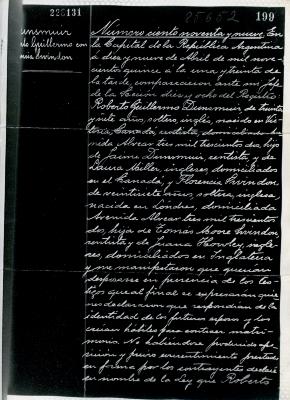 228131
25652
199
Dunsmuir
Roberto Guillermo con
Swindon
Número ciento noventa y nueve. En
la Capital de la República Argentina
a diez y nueve de Abril de mil nove-
cientos quince, a la una y treinta de
la tarde, comparecieron ante mi Jefe
de la Sección diez y ocho del Registro:
Roberto Guillermo Dunsmuir de treinta
y siete años, soltero, inglés, nacido en Vic-
toria, Canadá, rentista, domiciliado Ave-
nida Alvear tres mil trescientos dos, hijo
de Jaime Dunsmuir, rentista, y de
Laura Miller, ingleses, domiciliados
en el Canadá; y Florencia Swindon,
de veintisiete años, soltera, inglesa,
nacida en Londres, domiciliada
Avenida Alvear tres mil trescientos
dos, hija de Tomás Moore Swindon
rentista y de Juana, ingle-
ses, domiciliados en Inglaterra
y me manifestaron que querian
desposarse en presencia de los tes-
tigos que al final se expresarán quie-
nes declararon que respondian de la
identidad de los futuros esposos y los
creian hábiles para contraer matri-
monio. No habiéndose producido opo-
sición y previo consentimiento prestado
en forma por los contrayentes declaré
en nombre de la Ley que Roberto